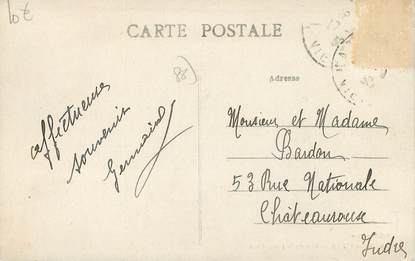 10€
CARTE POSTALE
(86)
Adresse
affectueux
souvenir
Germaine
Monsieur et Madame
Bardon
53 Rue Nationale
Châteauroux
Indre